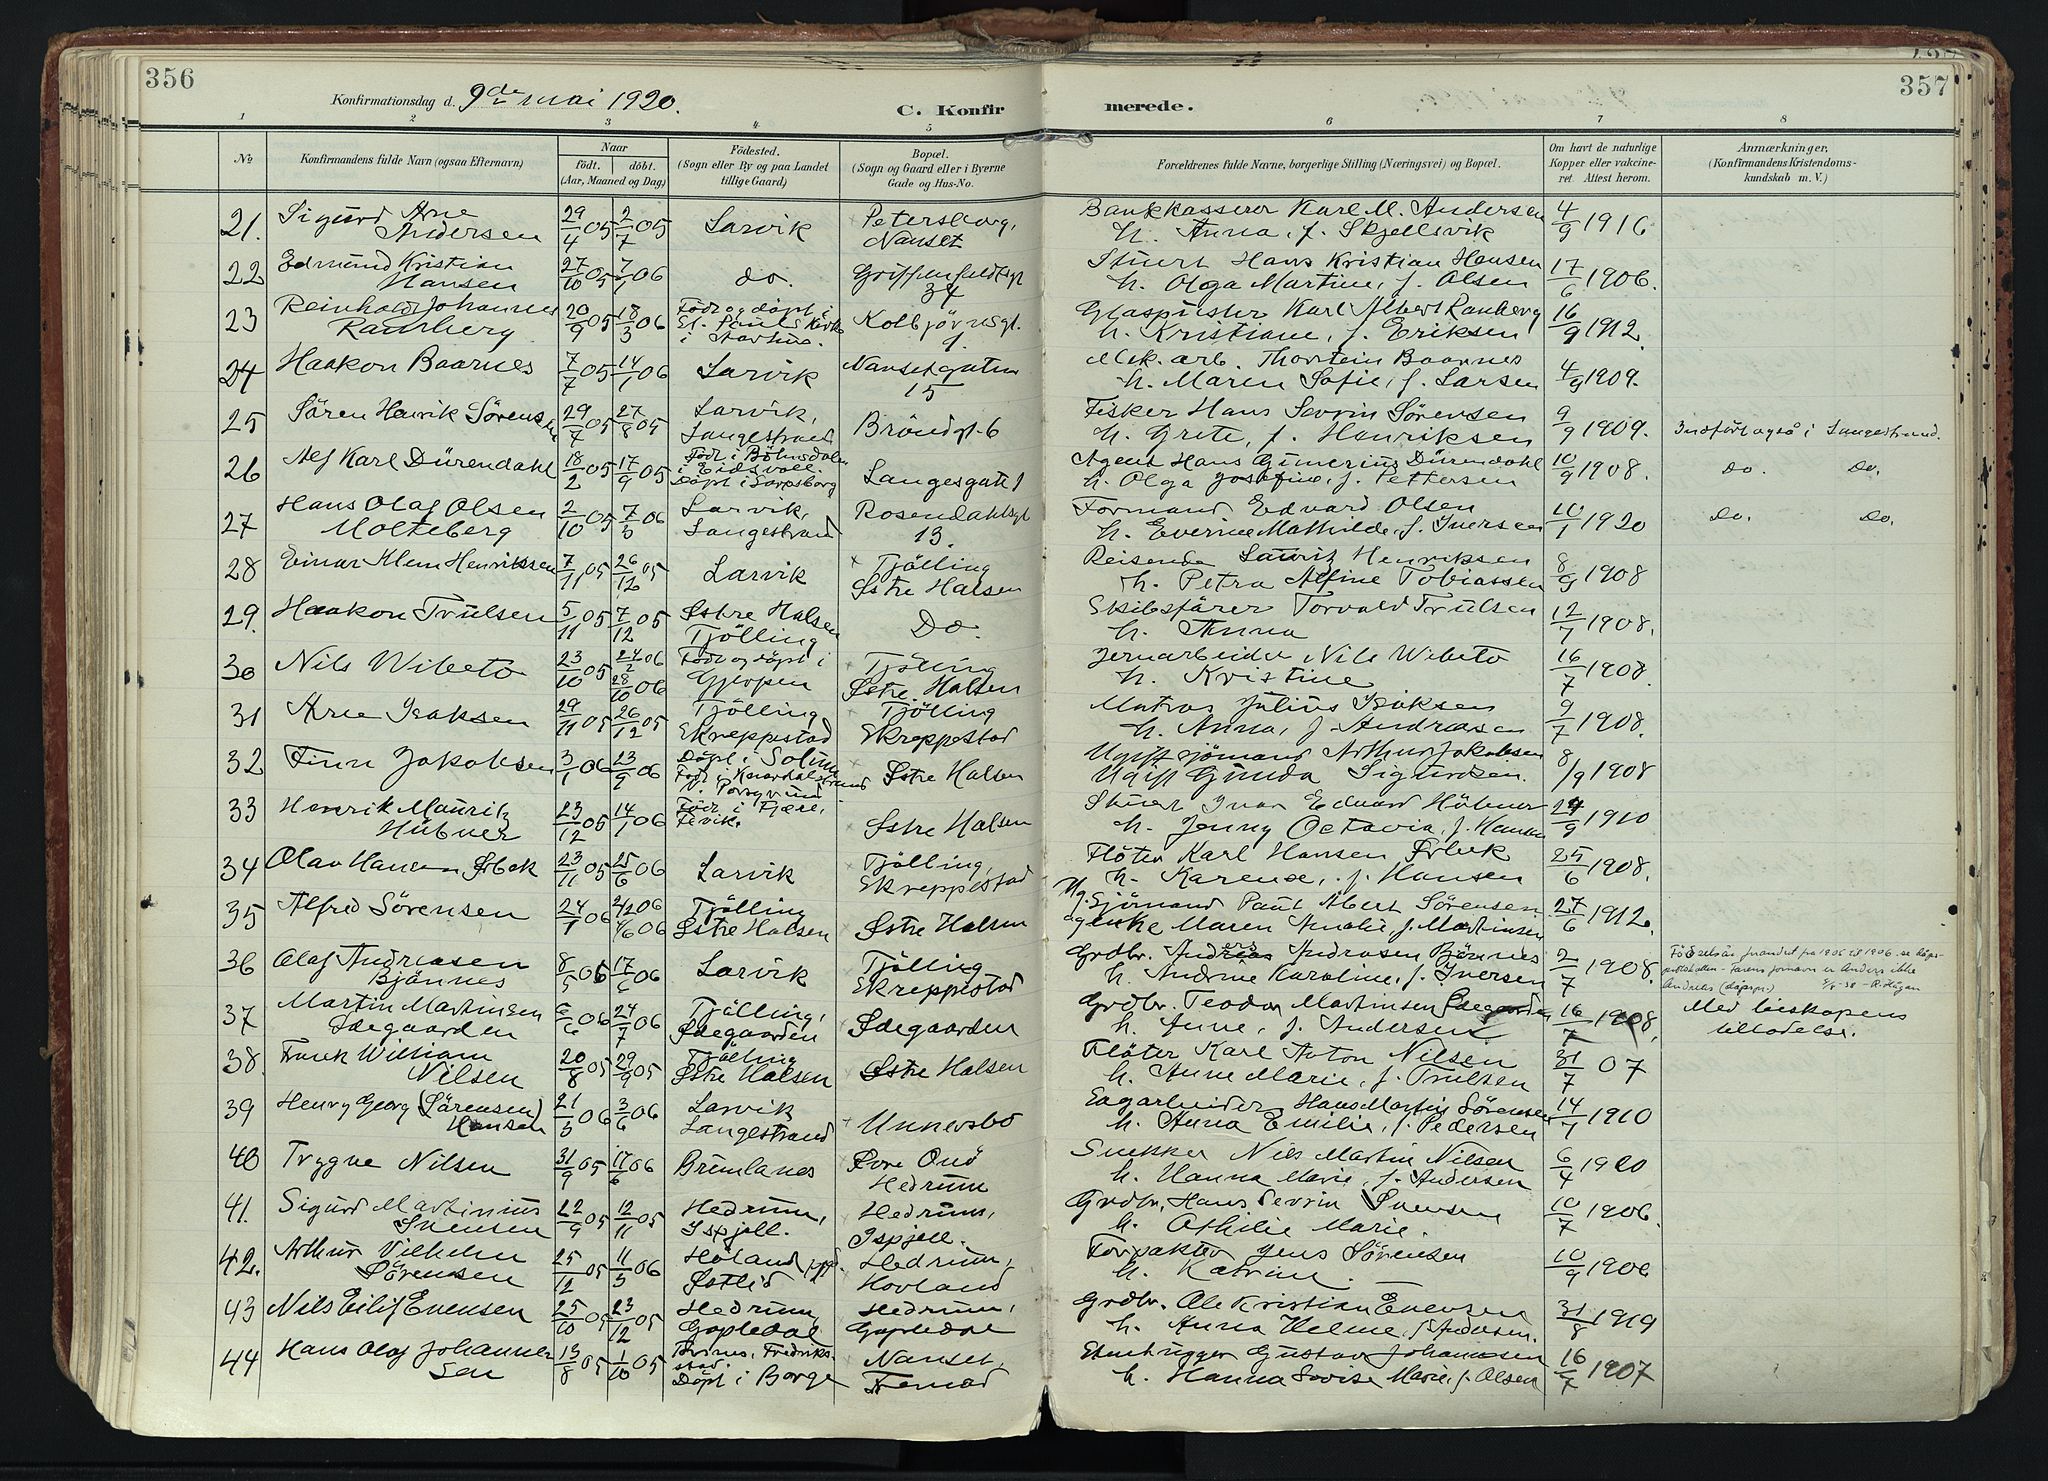 356
357
Konfirmationsdag d. 9de mai 1920.
C. Konfirmerede.
1 2 3 4 5 6 7 8
No
Konfirmandens fulde Navn (ogsaa Efternavn)
Naar
født. døbt.
(Aar, Maaned og Dag)
Fødested.
(Sogn eller By og paa Landet
tillige Gaard)
Bopæl.
(Sogn og Gaard eller i Byerne
Gade og Hus-No.
Forældrenes fulde Navne, borgerlige Stilling (Næringsvei) og Bopæl.
Om havt de naturlige
Kopper eller vakcine-
ret Attest herom.
Anmærkninger.
(Konfirmandens Kristendoms-
kundskab m. V.)
21. Sigurd Arne Andersen 29/4 05 2/7 05 Larvik Petersborg, Nanset Bankkasserer Karl M. Andersen h. Anna, f. Skjellsvik 4/9 1916
22 Edmund Kristian Hansen 27/10 05 7/1 06 do. Griffenfeldtsgt 34 Stuert Hans Kristian Hansen h. Olga Martine, f. Olsen 17/6 1906.
23 Reinhold Johannes Ramberg 20/9 05 18/3 06 Født og døpt i St. Pauls Kirke i Kolbjørnsgt. Glaspuster Karl Albert Ramberg h. Kristiane, f. Eriksen 16/9 1912.
24 Haakon Baarnes 7/7 05 14/1 06 Larvik Nansetgaten 15 Mek. arb. Thorstein Baarnes h. Maren Sofie, f. Larsen 4/9 1909.
25 Søren Henrik Sørensen 29/7 05 27/8 05 Larvik, Langestrand Brøndgt. 6 Fisker Hans Severin Sørensen h. Grete, f. Henriksen 9/9 1909. Indført også i Langestrand.
26 Alf Karl Dürendahl 18/2 05 17/9 05 Født i Bøhnsdalen i Eidsvoll. Døpt i Sarpsborg Langesgatt 1 Agent Hans Dürendahl h. Olga Josefine, f. Pettersen 10/9 1908. Do. Do.
27 Hans Olaf Olsen Molteberg 2/10 05 7/3 06 Larvik, Langestrand Rosendahlsgt 13. Formand Edvard Olsen h. Everine Mathilde, f. Iversen 10/1 1920 Do. Do.
28 Einar Klem Henriksen 7/11 05 26/12 05 Larvik Tjølling Østre Halsen Reisende Lauritz Henriksen h. Petra Alfine Tobiassen 8/9 1908
29. Haakon Trulsen 5/11 05 7/12 05 Østre Halsen Tjølling Do. Skibsfører Torvald Trulsen h. Anna 12/7 1908.
30 Nils Wibeto 23/10 05 24/2 06 28/10 06 Født og døpt i Gjerpen Tjølling Østre Halsen Jernarbeider Nils Wibeto h. Kristine 16/7 1908.
31 Arne Isaksen 29/11 05 26/12 05 Tjølling Skreppestad Tjølling Skreppestad Matros Julius Isaksen h. Anna, f. Andreasen 9/7 1908.
32 Finn Jakobsen 3/1 06 23/9 06 Døpt i Solum Født i Østre Halsen Ugift sjømand Arthur Jakobsen Ugift Gunda Sigurdsen. 8/9 1908
33 Henrik Mauritz Hübner 23/12 05 14/1 06 Født i Fjære, Fevik. Østre Halsen Stuert Ivar Edvard Hübner h. Jenny Octavia, f. Hansen 24/9 1910
34 Olav Hansen Ørbek 23/11 05 25/6 06 Larvik Tjølling, Skreppestad Fløter Karl Hansen Ørbek h. Karense, f. Hansen 25/6 1908.
35 Alfred Sørensen 24/1 06 4/6 06 Tjølling Østre Halsen Østre Halsen Ug. Sjømand Paul Albert Sørensen og enke Maren Amalie, f. Martinsen 27/6 1912.
36 Olaf Andreasen Bjønnes 8/5 06 17/6 06 Larvik Tjølling Skreppestad Grdbr. Anders Andreasen Bjønnes h. Andrine Karoline, f. Iversen 2/7 1908. Fødselsår forandret fra 1905 til 1906. se dåps-protokollen - Farens fornavn er Anders ikke Andreas (dåpspr.)
37 Martin Martinsen Ødegaarden 6/6 06 24/7 06 Tjølling, Ødegaarden Ødegaarden Grdbr. Teodor Martinsen Ødegaarden h. Anne, f. Andersen 16/7 1908, Med biskopens tilladelse.
38. Frank William Nilsen 20/8 05 29/9 05 Tjølling Østre Halsen Østre Halsen Fløter Karl Anton Nilsen h. Anne Marie, f. Trulsen 31/7 07
39 Henry Georg (Sørensen) Hansen 21/3 06 3/6 06 Larvik Langestrand Unnersbo Sagarbeider Hans Martin Sørensen h. Anna Emilie, f. Pedersen 14/7 1910
40 Trygve Nilsen 31/9 05 17/6 06 Brunlanes Øvre Onø Hedrum Snekker Nils Martin Nilsen h. Hanna Marie, f. Andersen 6/4 1920
41. Sigurd Martinius Svensen 22/9 05 12/11 05 Hedrum, Ispjell. Hedrum, Ispjell. Grdbr. Hans Severin Svensen h. Othilie Marie. 10/7 1906.
42. Arthur Vilhelm Sørensen 25/12 05 11/3 06 Høland Østlid Hedrum, Hovland Forpakter Jens Sørensen h. Katrine. 10/9 1906
43 Nils Eilif Evensen 25/10 05 23/12 05 Hedrum, Gopledal Hedrum, Gopledal Grdbr. Ole Kristian Evensen h. Anna Helene, f. Andersen. 31/8 1919
44 Hans Olaf Johannessen 13/8 05 1/10 05 Fredriksstad. Døpt i Borge Nanset, Fremad Stenhugger Gustav Johannsen h. Hanna Lovise Marie, f. Olsen 16/7 1907